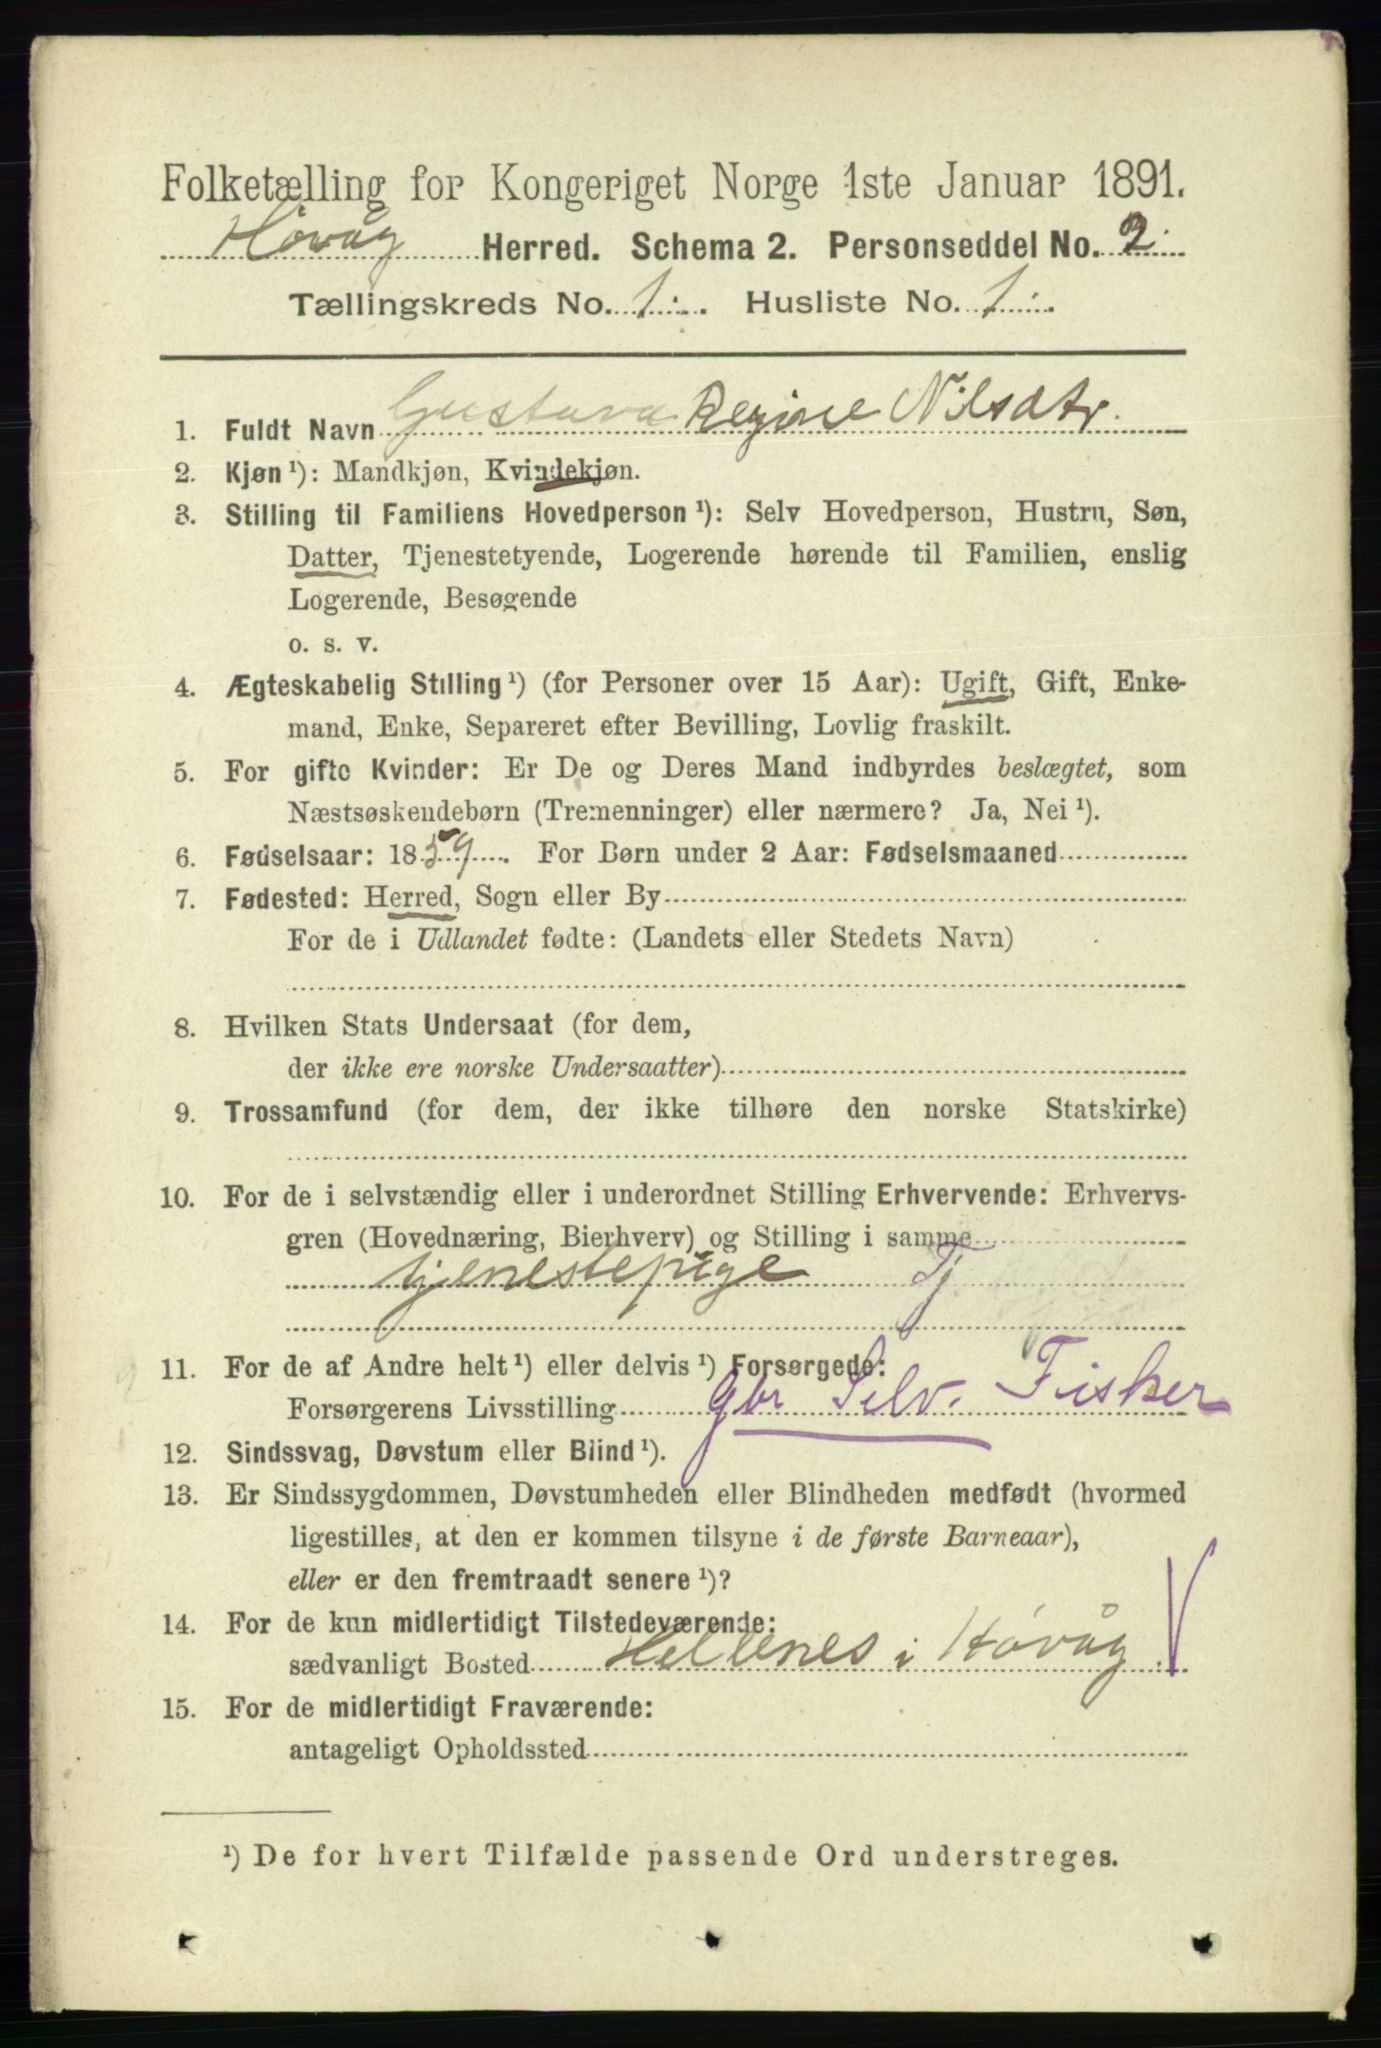 Folketælling for Kongeriget Norge 1ste Januar 1891.
Høvåg Herred. Schema 2. Personseddel No. 2.
Tællingskreds No. 1. Husliste No. 1.
1. Fuldt Navn Gustava Regine Nilsdtr.
2. Kjøn ¹): Mandkjøn, Kvindekjøn.
3. Stilling til Familiens Hovedperson ¹): Selv Hovedperson, Hustru, Søn,
Datter, Tjenestetyende, Logerende hørende til Familien, enslig
Logerende, Besøgende
o. s. v.
4. Ægteskabelig Stilling ¹) (for Personer over 15 Aar): Ugift, Gift, Enke-
mand, Enke, Separeret efter Bevilling, Lovlig fraskilt.
5. For gifte Kvinder: Er De og Deres Mand indbyrdes beslægtet, som
Næstsøskendebørn (Tremenninger) eller nærmere? Ja, Nei ¹).
6. Fødselsaar: 1859. For Børn under 2 Aar: Fødselsmaaned
7. Fødested: Herred, Sogn eller By
For de i Udlandet fødte: (Landets eller Stedets Navn)
8. Hvilken Stats Undersaat (for dem,
der ikke ere norske Undersaatter)
9. Trossamfund (for dem, der ikke tilhøre den norske Statskirke)
10. For de i selvstændig eller i underordnet Stilling Erhvervende: Erhvervs-
gren (Hovednæring, Bierhverv) og Stilling i samme
tjenestepige Tj
11. For de af Andre helt ¹) eller delvis ¹) Forsørgede:
Forsørgerens Livsstilling Gbr Selv. Fisker
12. Sindssvag, Døvstum eller Blind ¹).
13. Er Sindssygdommen, Døvstumheden eller Blindheden medfødt (hvormed
ligestilles, at den er kommen tilsyne i de første Barneaar),
eller er den fremtraadt senere ¹)?
14. For de kun midlertidigt Tilstedeværende:
sædvanligt Bosted Hellenes i Høvåg
15. For de midlertidigt Fraværende:
antageligt Opholdssted
¹) De for hvert Tilfælde passende Ord understreges.